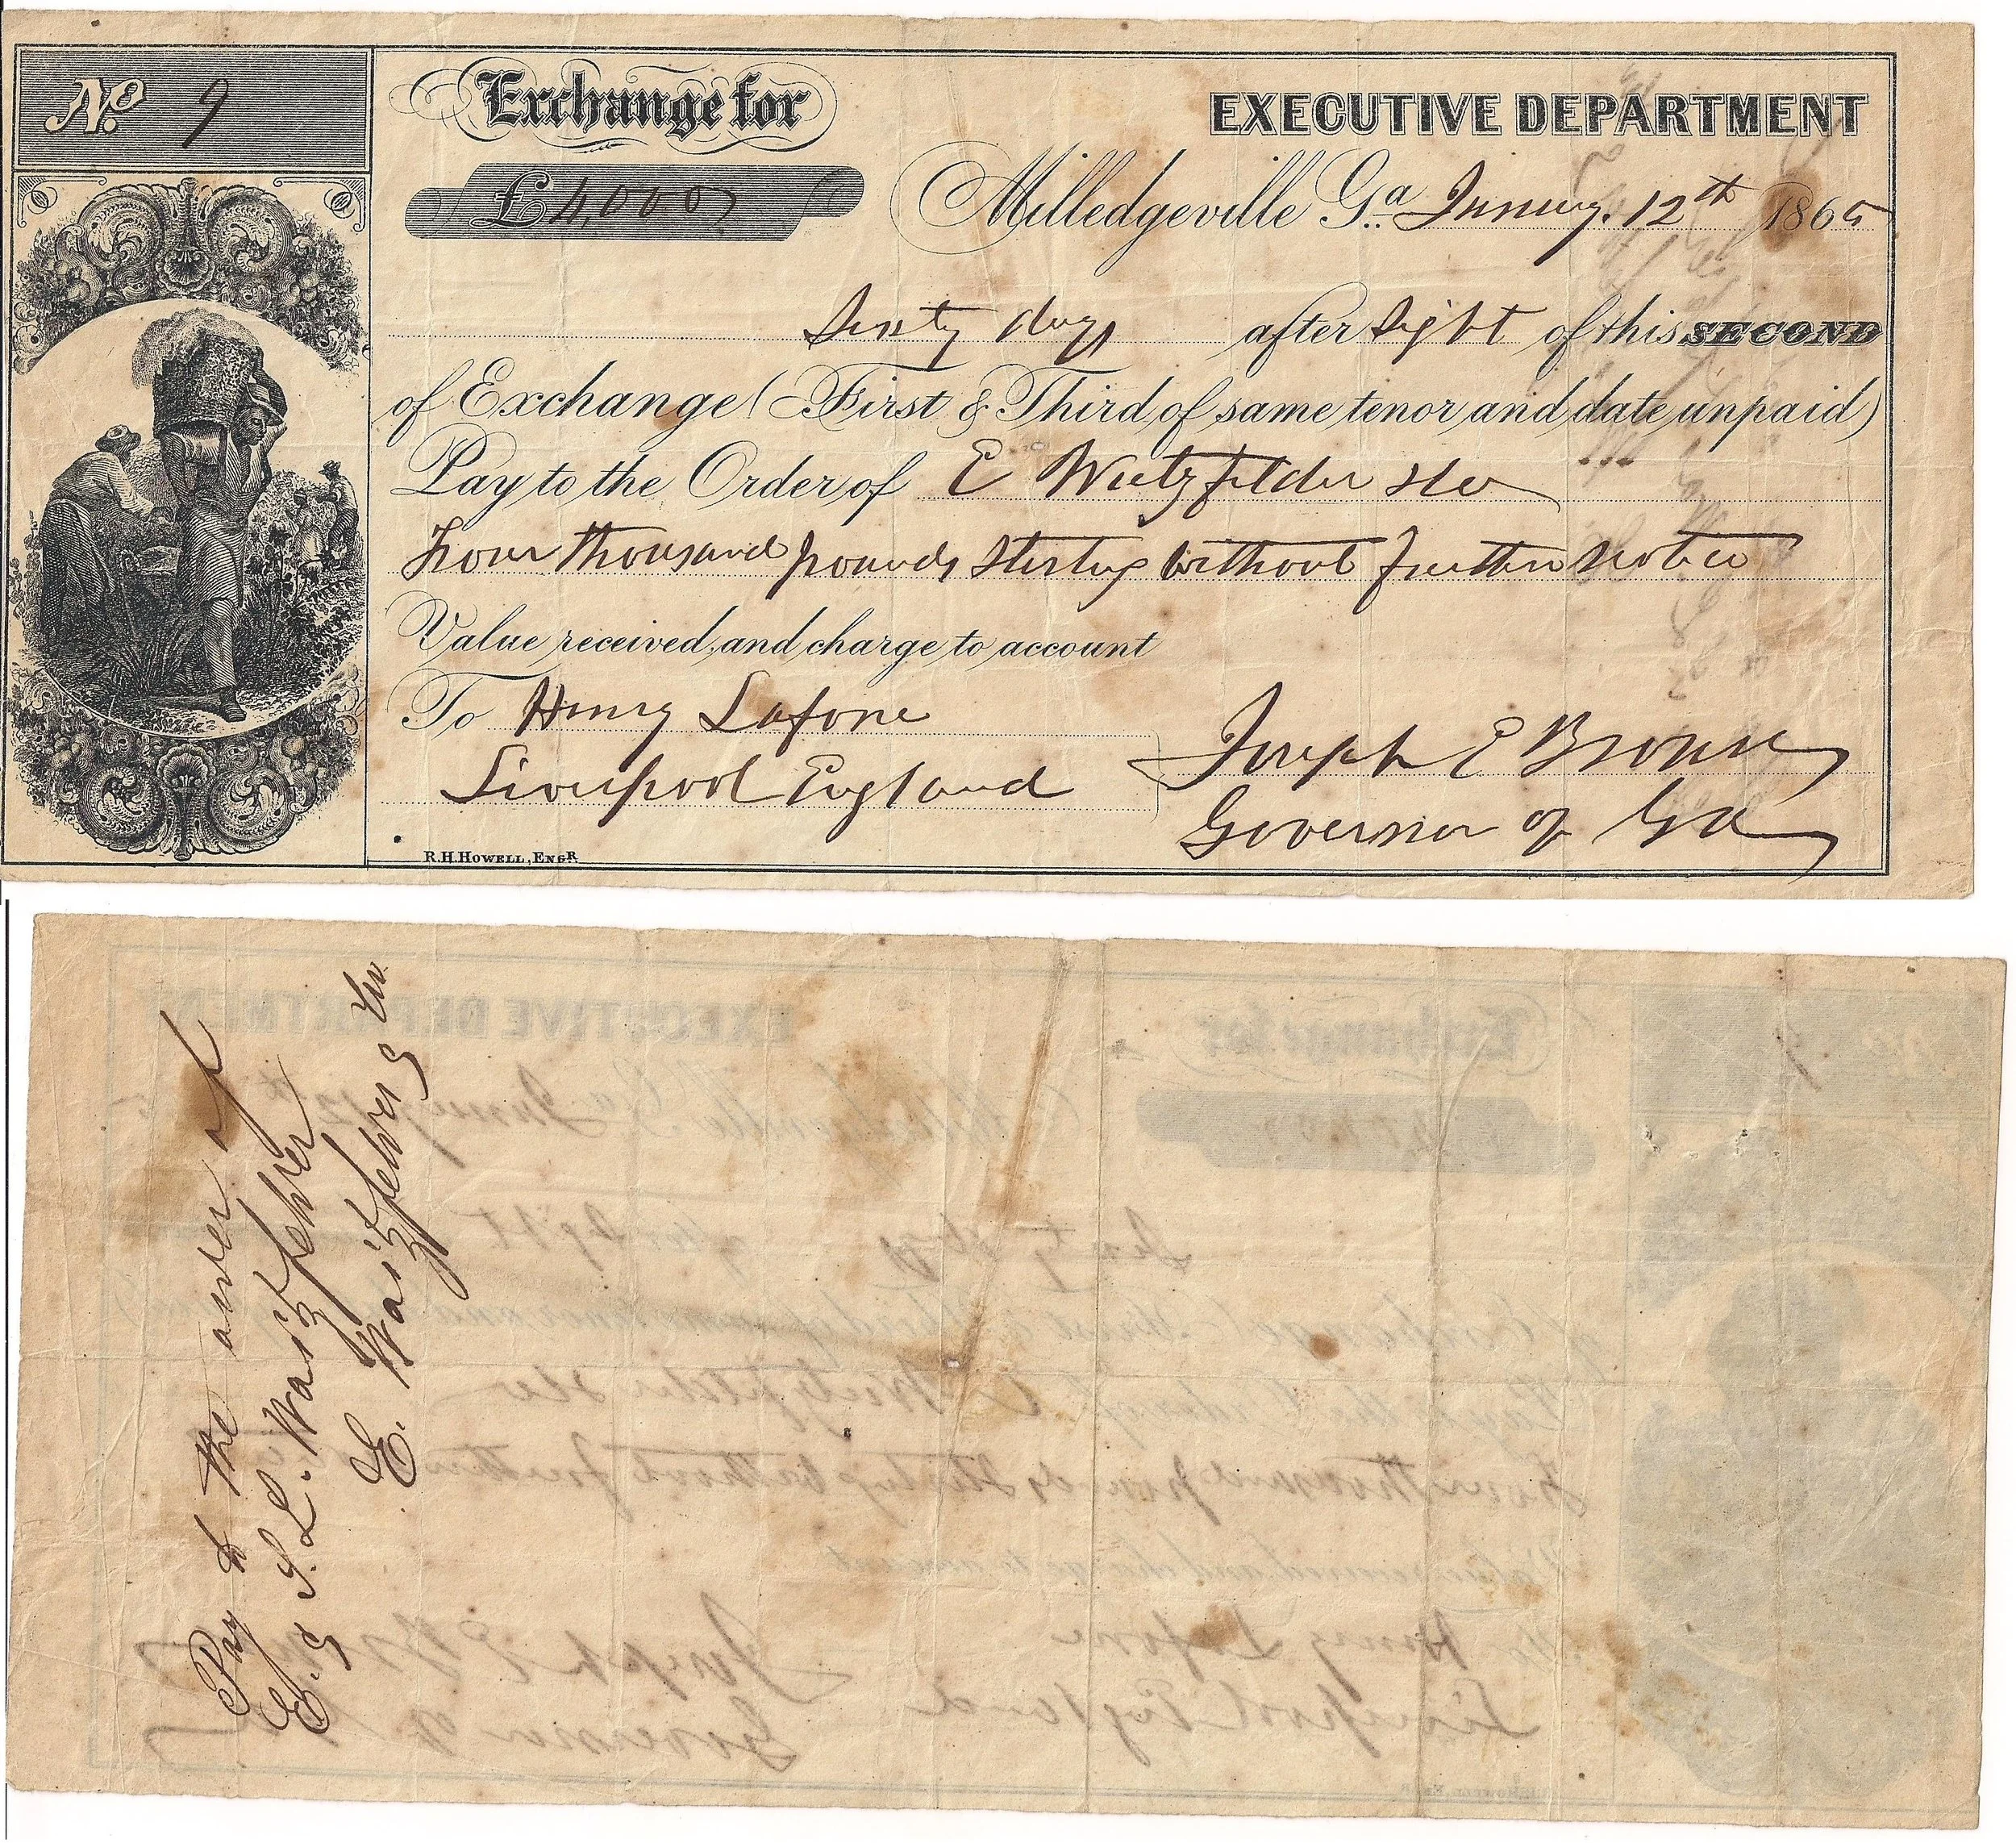 No. 9
Exchange for
£ 4,000
EXECUTIVE DEPARTMENT
Milledgeville Ga. January 12th 1865
Sixty days after sight of this SECOND
of Exchange (First & Third of same tenor and date unpaid)
Pay to the Order of E Waitzfelder & Co
Four thousand pounds Sterling without further notice
Value received, and charge to account
To Henry Lafone
Liverpool England
Joseph E Brown
Governor of Ga
R.H. HOWELL, ENGR.
Pay to the order of
E. & S. L. Waitzfelder
E. Waitzfelder & Co.